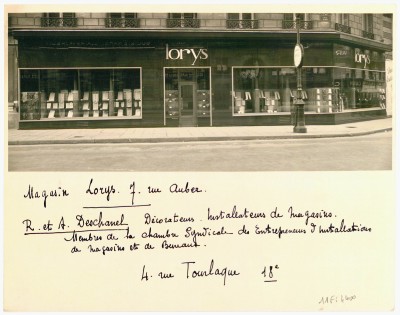 lorys
lorys
Magasin Lorys. 7. rue Auber.
R. et A. Deschanel Décorateurs. Installateurs de magasins.
Membres de la Chambre Syndicale des Entrepreneurs d'Installations
de magasins et de Bureaux.
4. rue Tourlaque 18e